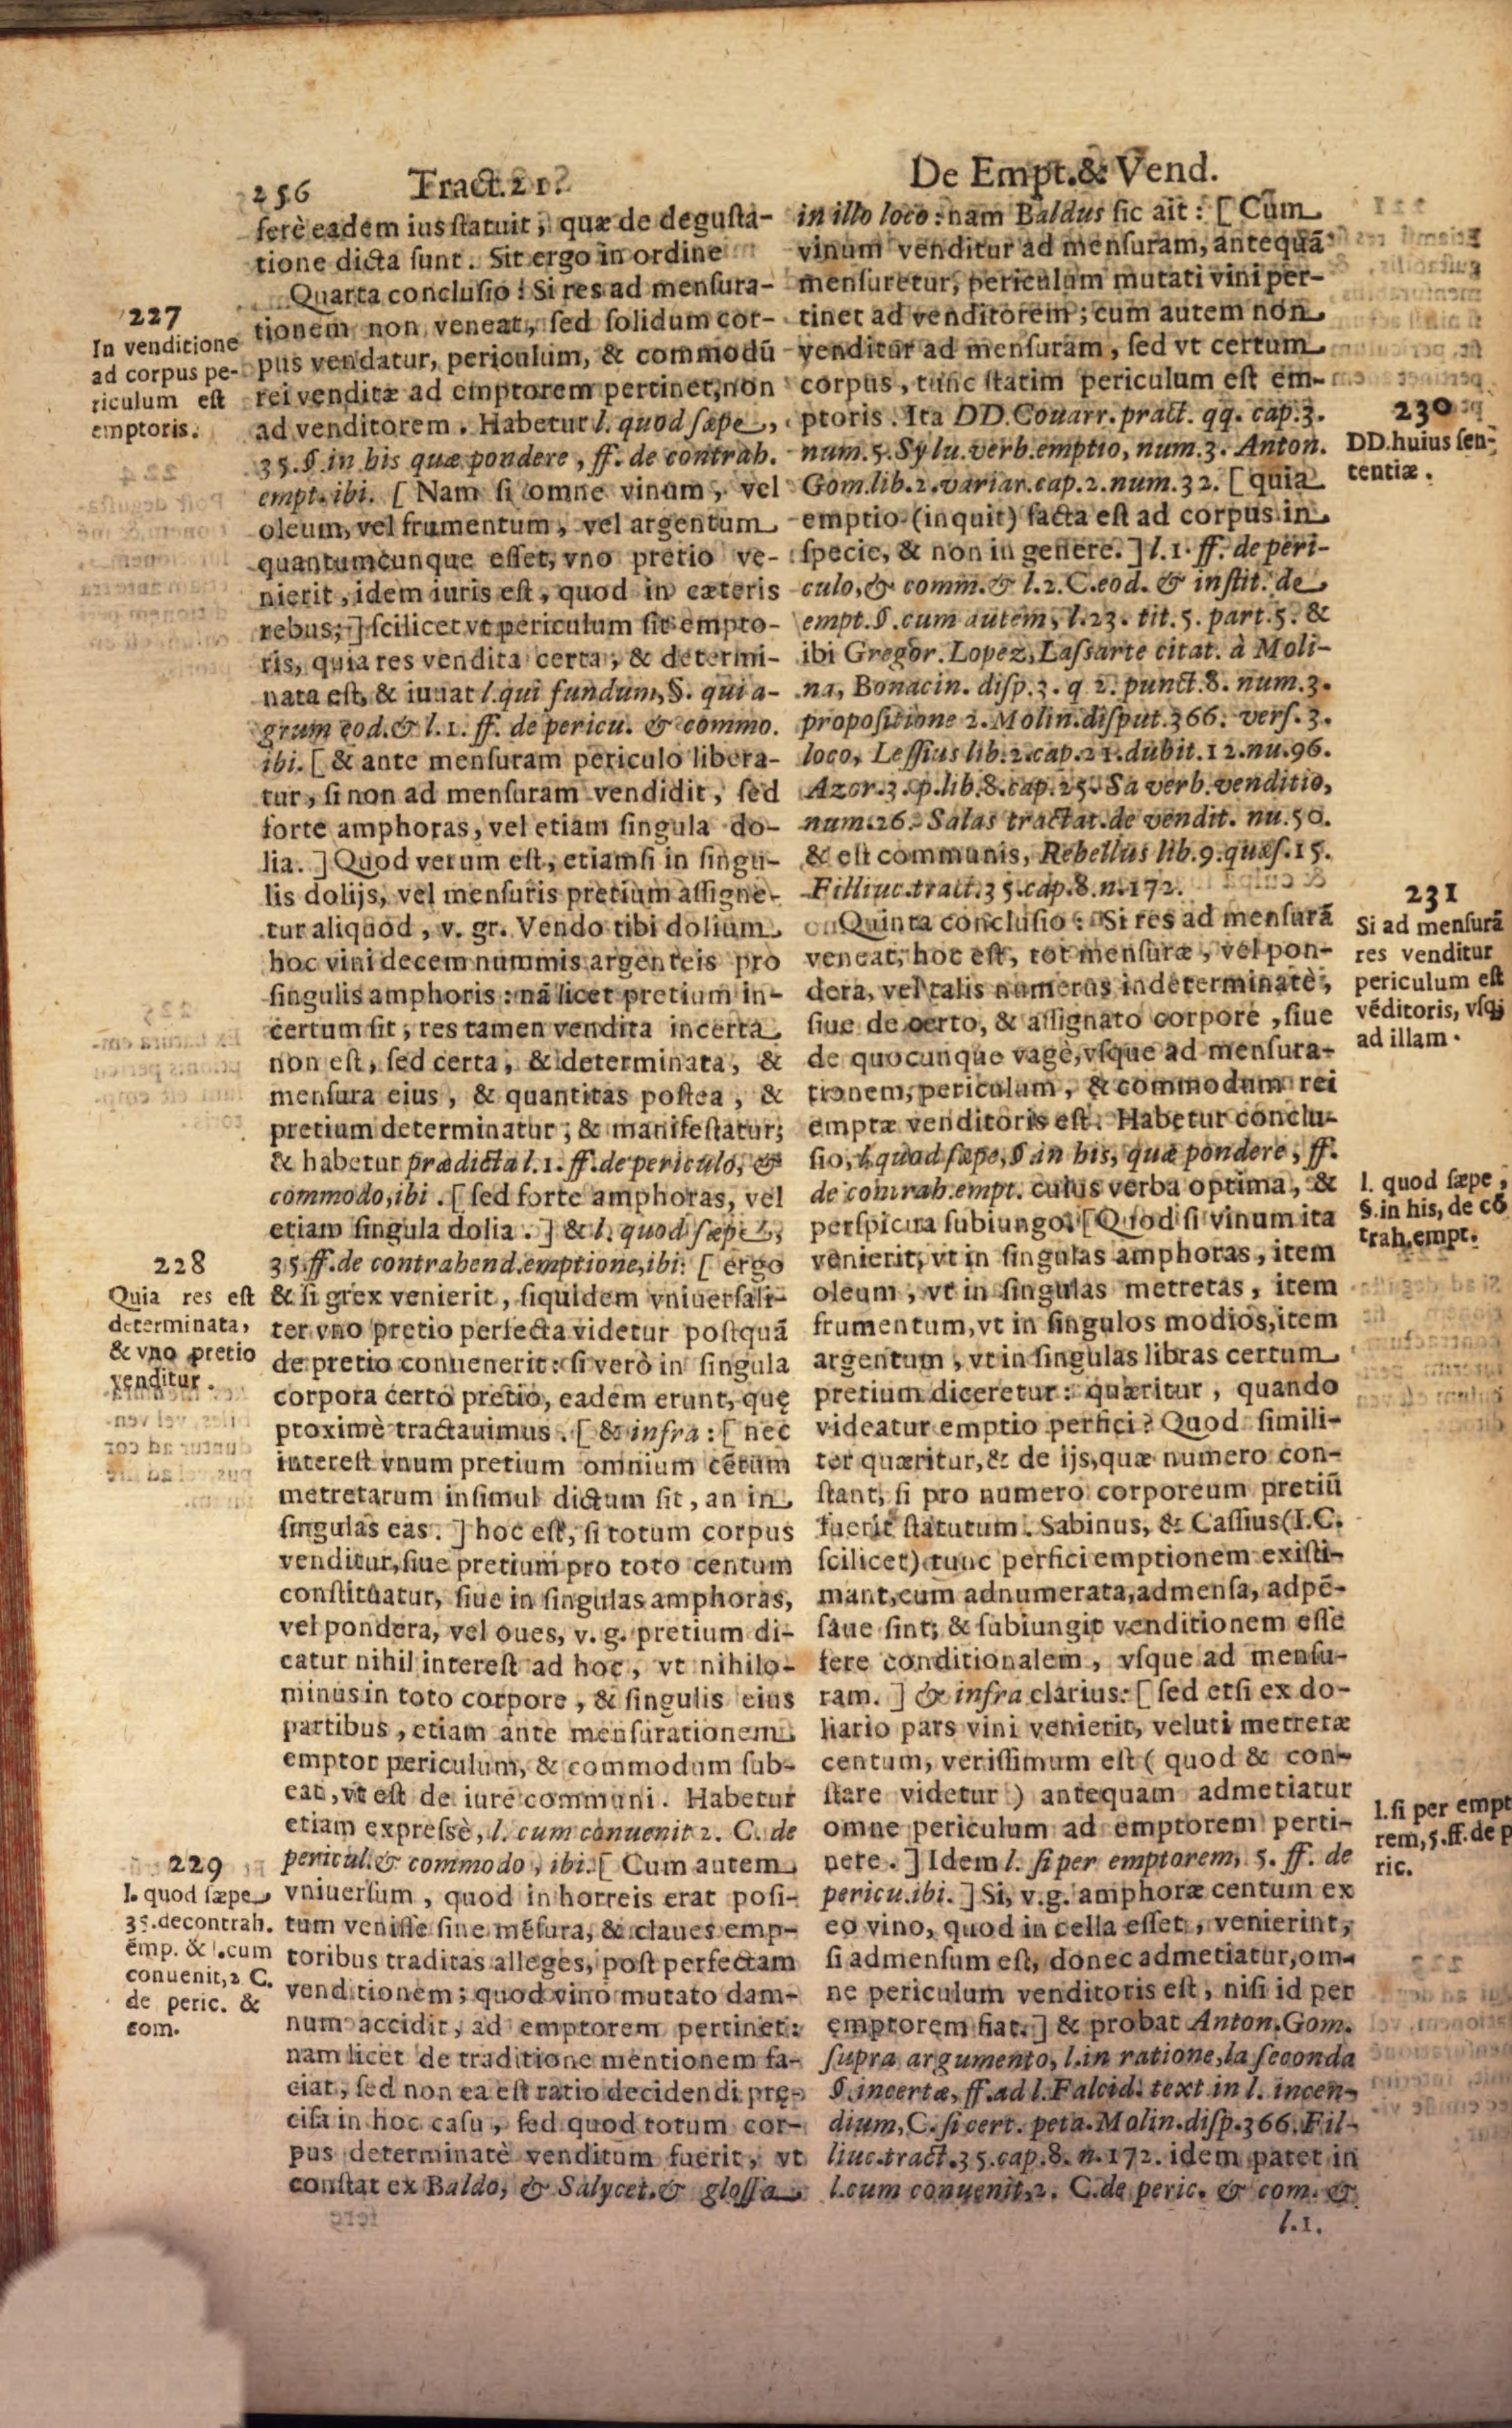 256 Tract. 21. De Empt. & Vend.
ferè eadem ius ſtatuit, quæ de deguſta-
tione dicta ſunt. Sit ergo in ordine
Quarta concluſio: Si res ad menſura-
tionem non veneat, ſed ſolidum cor-
pus vendatur, periculum, & commodū
rei venditæ ad emptorem pertinet, non
ad venditorem. Habetur l. quod ſæpe,
35. §. in his quæ pondere, ff. de contrah.
empt. ibi. [Nam ſi omne vinum, vel
oleum, vel frumentum, vel argentum
quantumcunque eſſet, vno pretio ve-
nierit, idem iuris eſt, quod in cæteris
rebus;] ſcilicet vt periculum ſit empto-
ris, quia res vendita certa, & determi-
nata eſt, & iuuat l. qui fundum, §. qui a-
grum eod. & l. 1. ff. de pericu. & commo.
ibi. [& ante menſuram periculo libera-
tur, ſi non ad menſuram vendidit, ſed
forte amphoras, vel etiam ſingula do-
lia.] Quod verum eſt, etiamſi in ſingu-
lis dolijs, vel menſuris pretium aſſigne-
tur aliquod, v. gr. Vendo tibi dolium
hoc vini decem nummis argenteis pro
ſingulis amphoris: nā licet pretium in-
certum ſit, res tamen vendita incerta
non eſt, ſed certa, & determinata, &
menſura eius, & quantitas poſtea, &
pretium determinatur, & manifeſtatur;
& habetur prædicta l. 1. ff. de periculo, &
commodo, ibi. [ſed forte amphoras, vel
etiam ſingula dolia.] & l. quod ſæpe,
35. ff. de contrahend. emptione, ibi: [ergo
& ſi grex venierit, ſiquidem vniuerſali-
ter vno pretio perfecta videtur poſtquā
de pretio conuenerit: ſi verò in ſingula
corpora certo pretio, eadem erunt, quę
proximè tractauimus. [& infra: [nec
intereſt vnum pretium omnium cētum
metretarum inſimul dictum ſit, an in
ſingulas eas.] hoc eſt, ſi totum corpus
venditur, ſiue pretium pro toto centum
conſtituatur, ſiue in ſingulas amphoras,
vel pondera, vel oues, v. g. pretium di-
catur nihil intereſt ad hoc, vt nihilo-
minus in toto corpore, & ſingulis eius
partibus, etiam ante menſurationem
emptor periculum, & commodum ſub-
eat, vt eſt de iure communi. Habetur
etiam expreſsè, l. cum conuenit 2. C. de
pericul. & commodo, ibi. [Cum autem
vniuerſum, quod in horreis erat poſi-
tum veniſſe ſine mēſura, & claues emp-
toribus traditas alleges, poſt perfectam
venditionem; quod vino mutato dam-
num accidit, ad emptorem pertinet:
nam licet de traditione mentionem fa-
ciat, ſed non ea eſt ratio decidendi prę-
ciſa in hoc caſu, ſed quod totum cor-
pus determinatè venditum fuerit, vt
conſtat ex Baldo, & Salycet. & gloſſa
227
In venditione
ad corpus pe-
riculum eſt
emptoris.
228
Quia res eſt
determinata,
& vno pretio
venditur.
229
l. quod ſæpe
35. de contrah.
emp. & l. cum
conuenit, 2 C.
de peric. &
com.
in illo loco: nam Baldus ſic ait: [Cūm
vinum venditur ad menſuram, antequā
menſuretur, periculum mutati vini per-
tinet ad venditorem; cum autem non
venditur ad menſuram, ſed vt certum
corpus, tunc ſtatim periculum eſt em-
ptoris. Ita DD. Couarr. pract. qq. cap. 3.
num. 5. Sylu. verb. emptio, num. 3. Anton.
Gom. lib. 2. variar. cap. 2. num. 32. [quia
emptio (inquit) facta eſt ad corpus in
ſpecie, & non in genere.] l. 1. ff. de peri-
culo, & comm. & l. 2. C. eod. & inſtit. de
empt. §. cum autem, l. 23. tit. 5. part. 5. &
ibi Gregor. Lopez, Laſſarte citat. à Moli-
na, Bonacin. diſp. 3. q 2. punct. 8. num. 3.
propoſitione 2. Molin. diſput. 366. verſ. 3.
loco, Leſſius lib. 2. cap. 21. dubit. 12. nu. 96.
Azor. 3. p. lib. 8. cap. 25. Sa verb. venditio,
num. 26. Salas tractat. de vendit. nu. 50.
& eſt communis, Rebellus lib. 9. quæſ. 15.
Filliuc. tract. 35. cap. 8. n. 172.
Quinta concluſio: Si res ad menſurā
veneat, hoc eſt, tot menſuræ, vel pon-
dera, vel talis numerus indeterminatè,
ſiue de certo, & aſſignato corpore, ſiue
de quocunque vagè, vſque ad menſura-
tionem, periculum, & commodum rei
emptæ venditoris eſt. Habetur conclu-
ſio, l. quod ſæpe, § in his, quæ pondere, ff.
de contrah. empt. cuius verba optima, &
perſpicua ſubiungo. [Quod ſi vinum ita
venierit, vt in ſingulas amphoras, item
oleum, vt in ſingulas metretas, item
frumentum, vt in ſingulos modios, item
argentum, vt in ſingulas libras certum
pretium diceretur: quæritur, quando
videatur emptio perfici? Quod ſimili-
ter quæritur, & de ijs, quæ numero con-
ſtant, ſi pro numero corporeum pretiū
fuerit ſtatutum. Sabinus, & Caſſius (I.C.
ſcilicet) tunc perfici emptionem exiſti-
mant, cum adnumerata, admenſa, adpē-
ſaue ſint; & ſubiungit venditionem eſſe
fere conditionalem, vſque ad menſu-
ram.] & infra clarius: [ſed etſi ex do-
liario pars vini venierit, veluti metretæ
centum, veriſſimum eſt (quod & con-
ſtare videtur) antequam admetiatur
omne periculum ad emptorem perti-
nere.] Idem l. ſi per emptorem, 5. ff. de
pericu. ibi.] Si, v.g. amphoræ centum ex
eo vino, quod in cella eſſet, venierint,
ſi admenſum eſt, donec admetiatur, om-
ne periculum venditoris eſt, niſi id per
emptorem fiat.] & probat Anton. Gom.
ſupra argumento, l. in ratione, la ſeconda
§. incertæ, ff. ad l. Falcid. text in l. incen-
dium, C. ſi cert. peta. Molin. diſp. 366. Fil-
liuc. tract. 35. cap. 8. n. 172. idem patet in
l. cum conuenit, 2. C. de peric. & com. &
l. 1.
230
DD. huius ſen-
tentiæ.
231
Si ad menſurā
res venditur
periculum eſt
vēditoris, vſq;
ad illam.
l. quod ſæpe,
§. in his, de cō
trah. empt.
l. ſi per empt
rem, 5. ff. de p
ric.